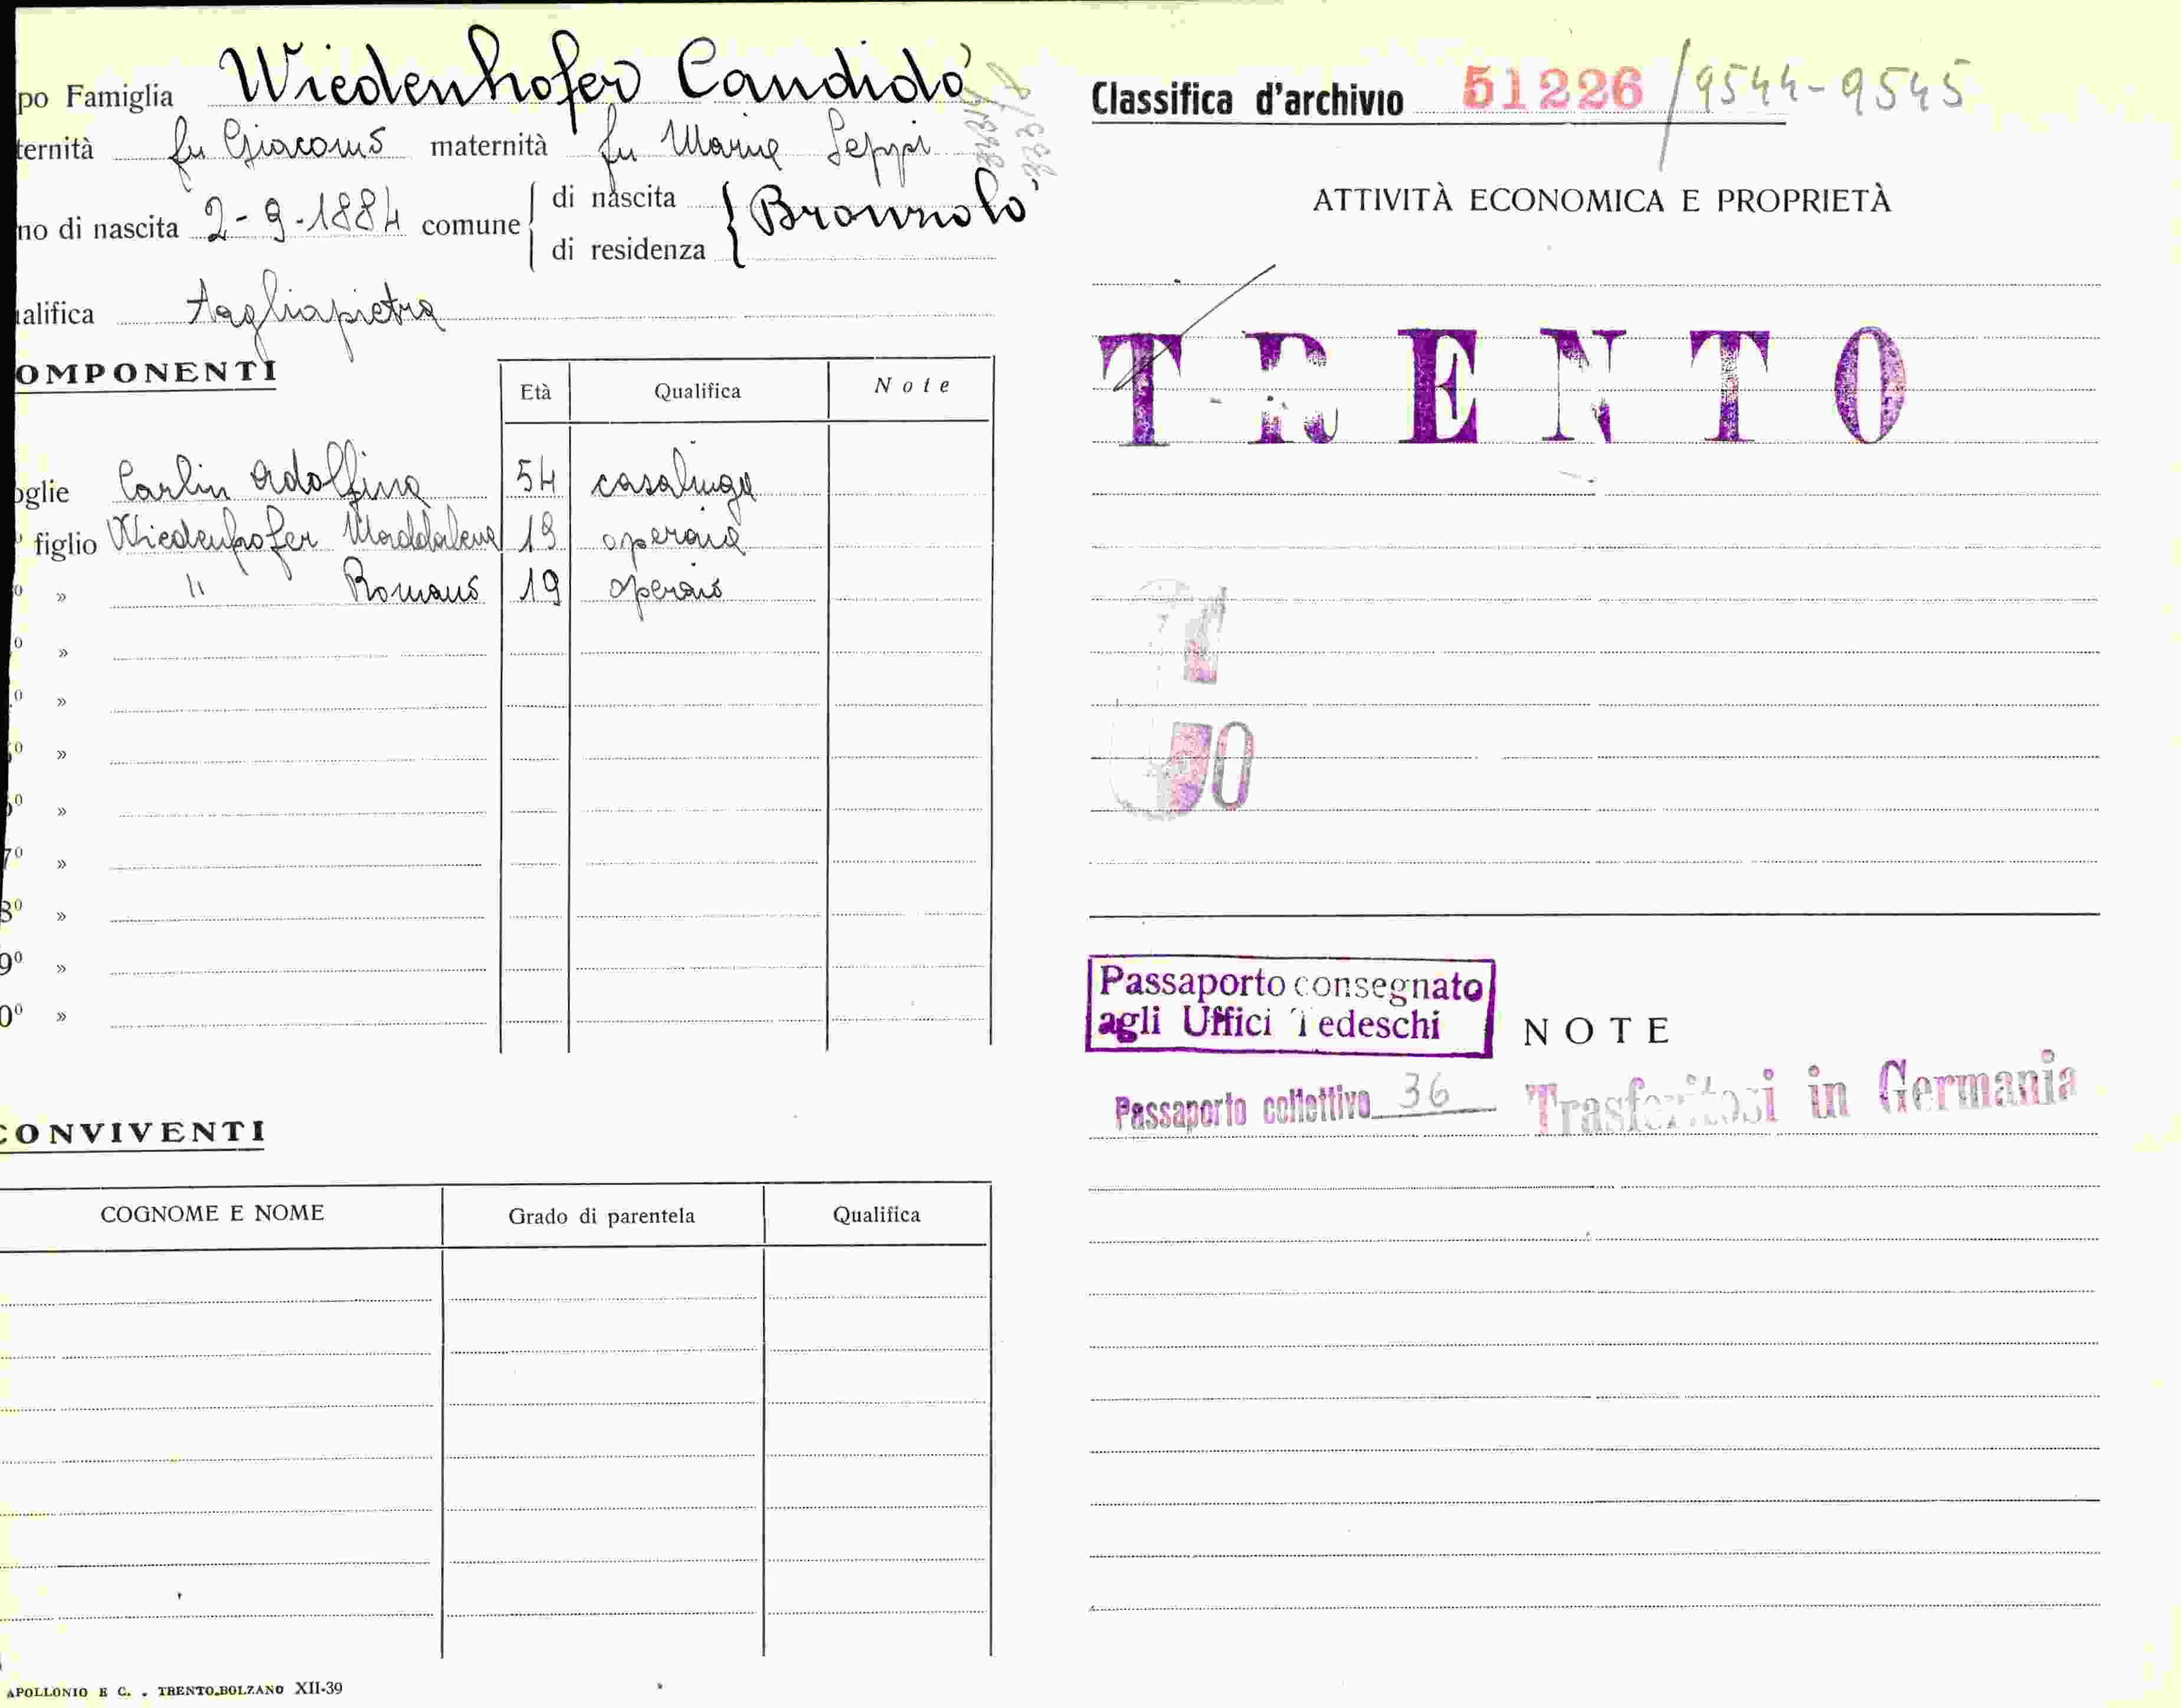 po Famiglia Wiedenhofer Candido
ternità fu Giacomo maternità fu Maria Seppi
no di nascita 2-9-1884 comune di nascita Bronzolo
di residenza
alifica tagliapietra
OMPONENTI
Età Qualifica Note
oglie Carlin Adolfina 54 casalinga
figlio Wiedenhofer Maddalena operaia
0 » " Romano 19 operaio
0 »
0 »
0 »
0 »
7º »
8º »
9º »
0º »
CONVIVENTI
COGNOME E NOME Grado di parentela Qualifica
APOLLONIO E C. - TRENTO-BOLZANO XII-39
Classifica d'archivio 51226 /9544-9545
ATTIVITÀ ECONOMICA E PROPRIETÀ
TRENTO
Passaporto consegnato
agli Uffici Tedeschi
NOTE
Passaporto collettivo 36 Trasferitosi in Germania